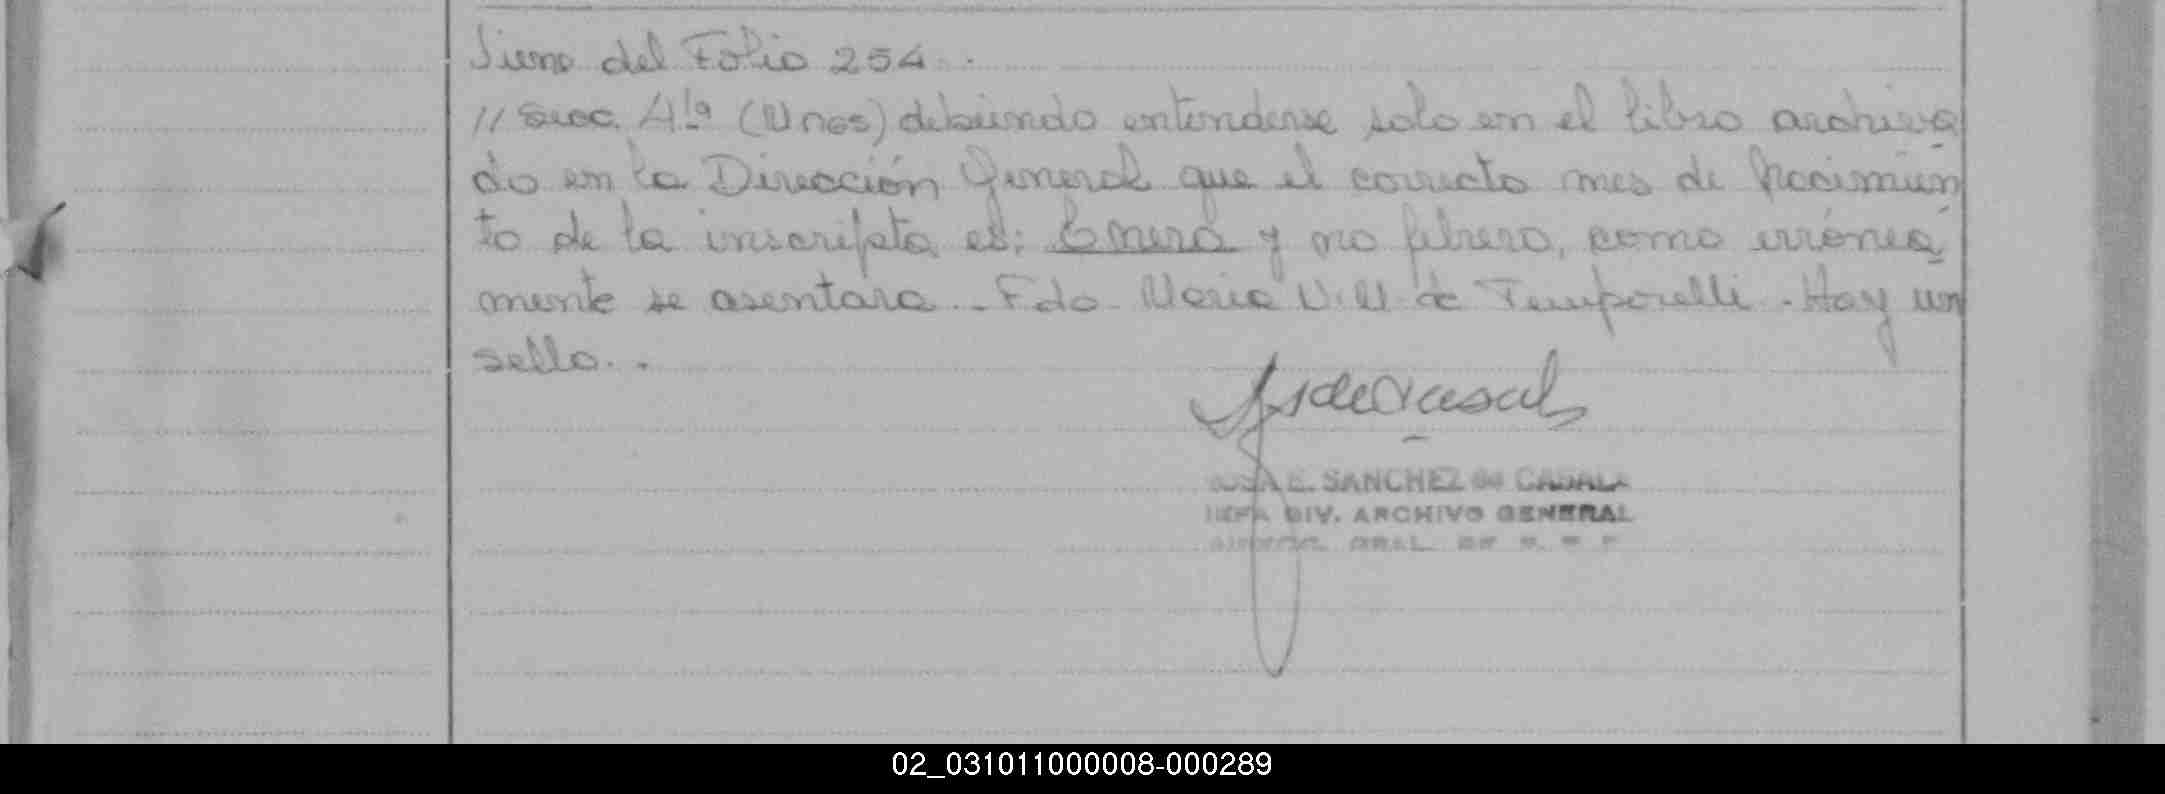 Viene del Folio 254..
// Secc. 4ta (Unos) debiendo entenderse solo en el libro archiva
do en la Dirección General que el correcto mes de Nacimien
to de la inscripta es: Enero y no febrero, como erronea
mente se asentara.. Fdo. Maria V. U. de Temporelli. Hay un
sello..
E. SANCHEZ de CASALA
JEFA DIV. ARCHIVO GENERAL
GRAL. DE
02_031011000008-000289